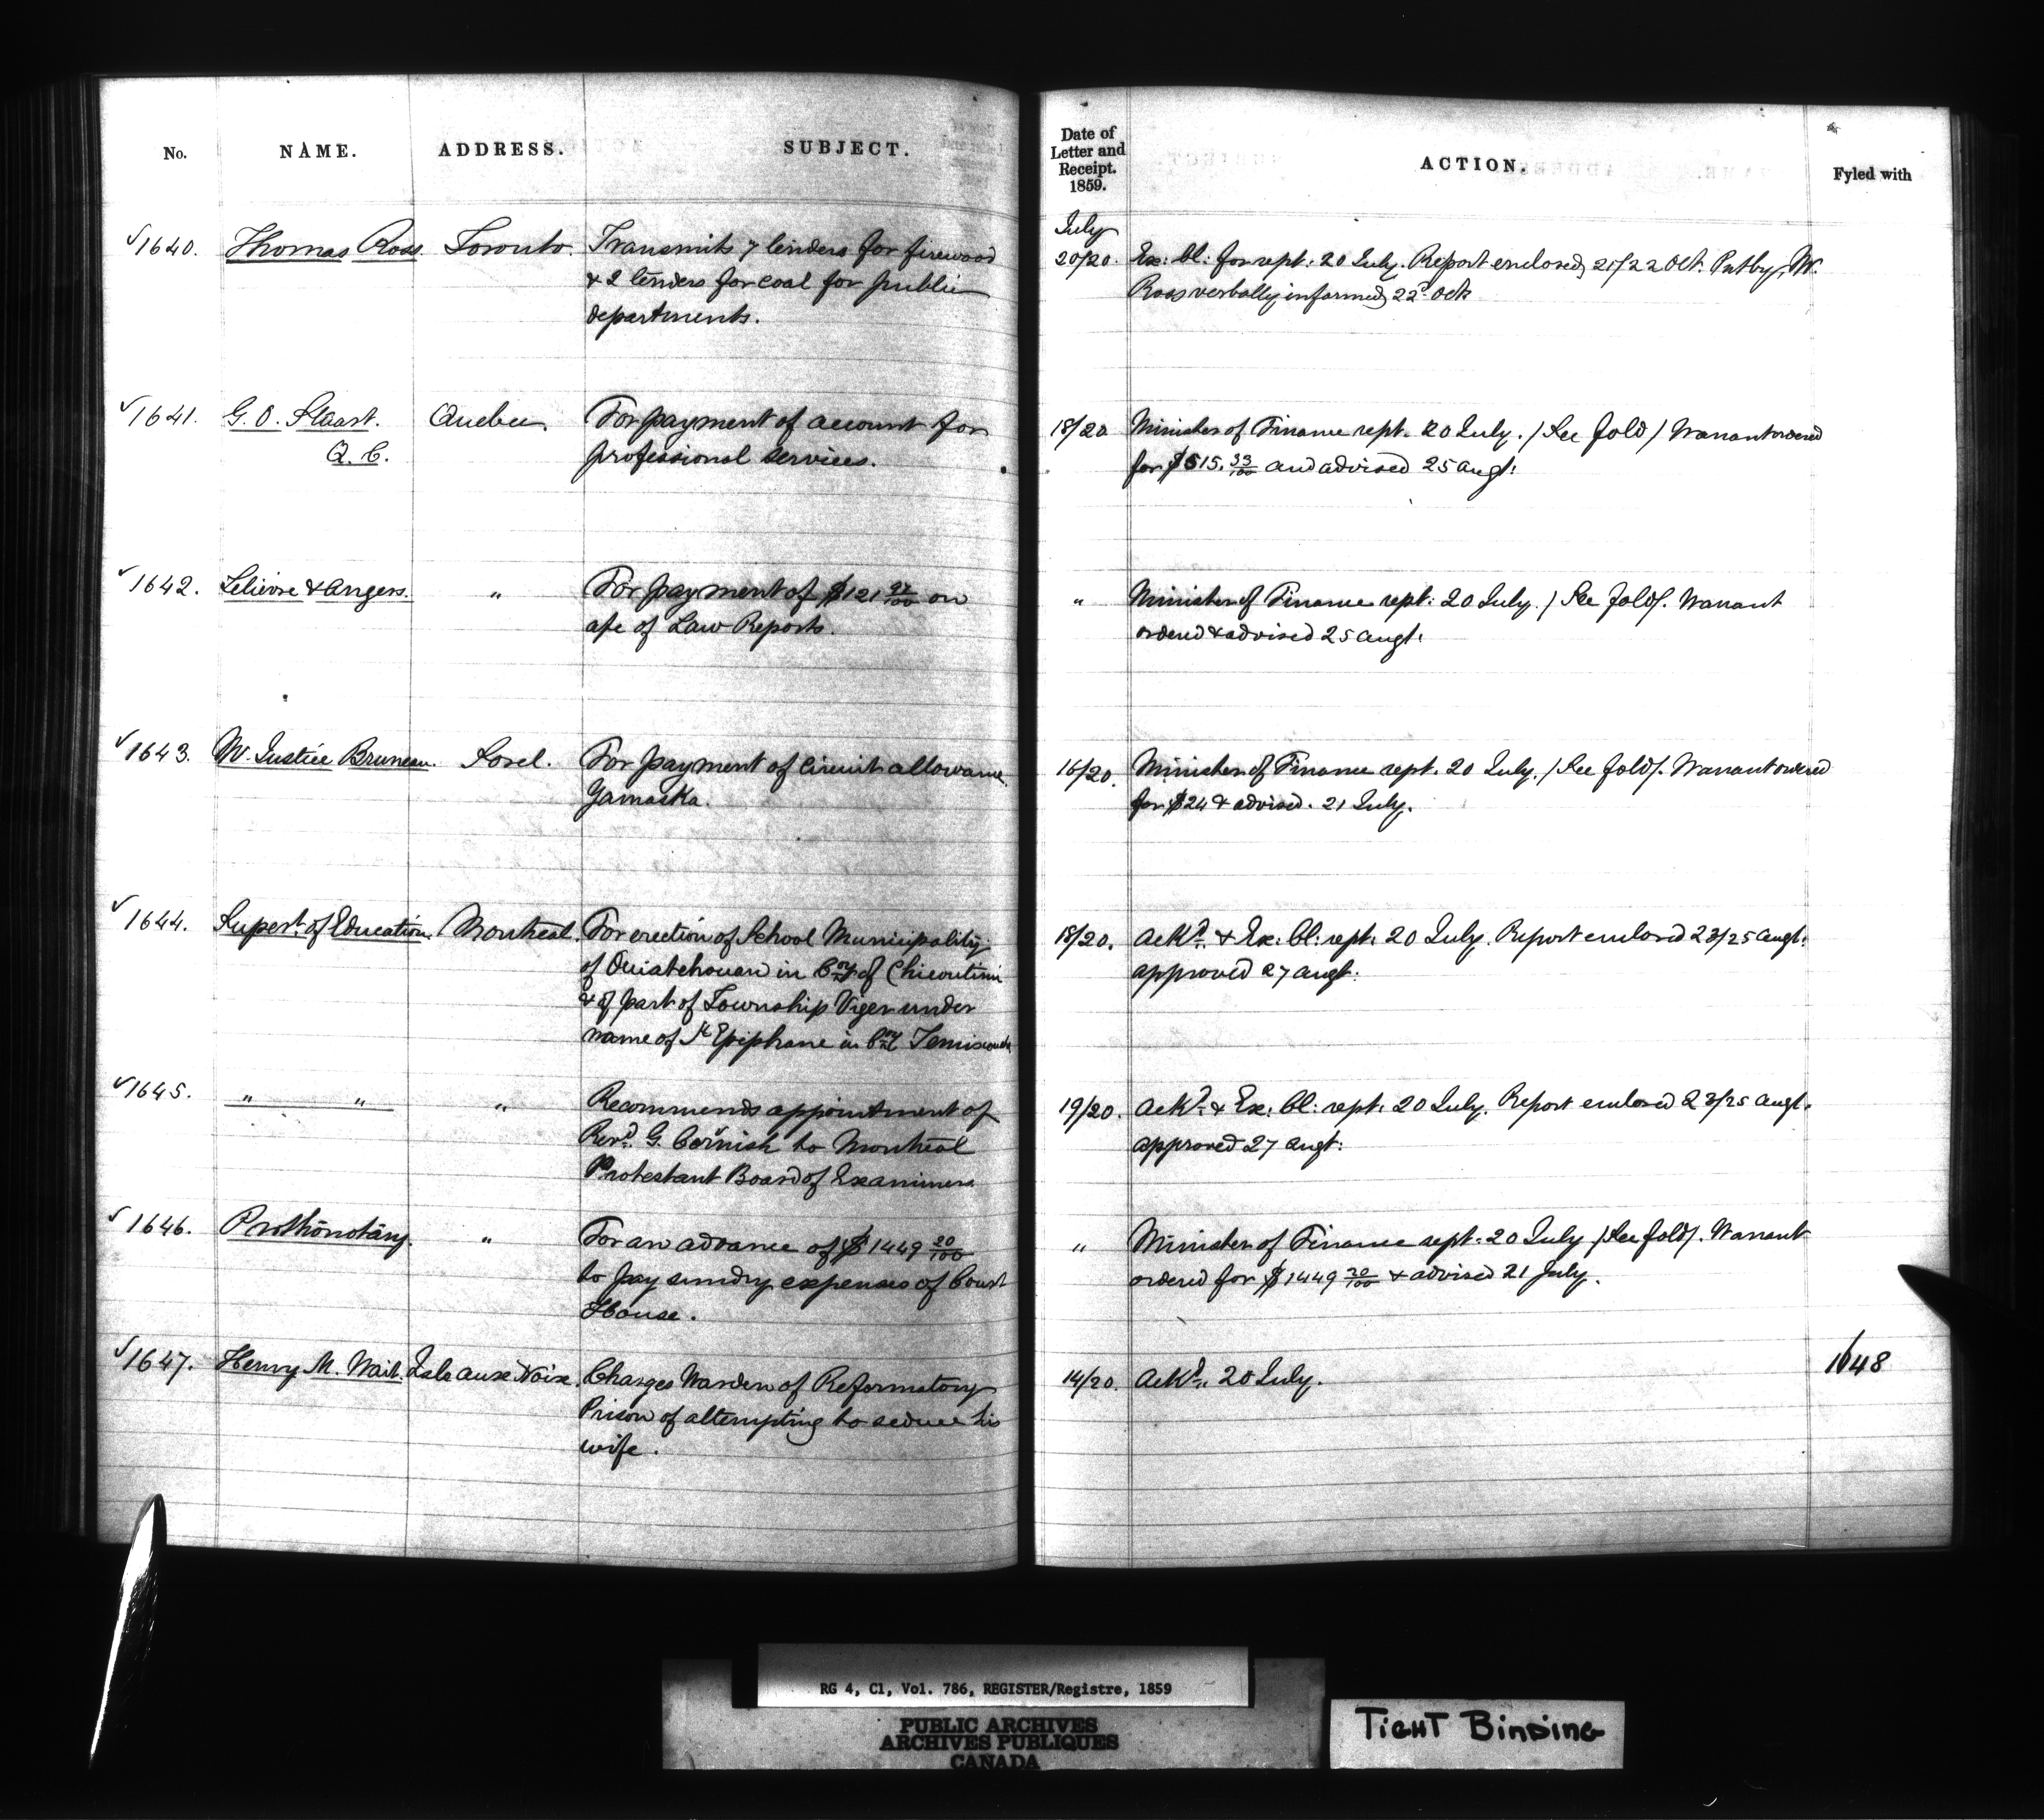 No. NAME. ADDRESS. SUBJECT.
Date of
Letter and
Receipt.
1859.
ACTION. Fyled with
√1640. Thomas Ross. Toronto. Transmits 7 tenders for firewood
& 2 tenders for coal for public
departments.
July
20/20. Ex: Cl: for rept: 20 July. Report enclosed 21/22 Oct. Putby, Mr.
Ross verbally informed 22d Oct.
√1641. G. O. Stuart. Quebec. For payment of account for
Q. C. professional services.
18/20 Minister of Finance rept. 20 July. / See fold / Warrant ordered
for $515. 33/100 and advised 25 Augt.
√1642. Lelievre & Angers. " For payment of $121 97/100 on
a/c of Law Reports.
" Minister of Finance rept: 20 July. / See fold/. Warrant
ordered & advised 25 Augt.
√1643. Mr. Justice Bruneau. Sorel. For payment of Circuit allowance
Yamaska.
16/20. Minister of Finance rept. 20 July. / See fold/. Warrant ordered
for $24 & advised. 21 July.
√1644. Supert. of Education. Montreal. For erection of School Municipality
of Ouiatchouan in Cny. of Chicoutimi
& of part of Township Viger under
name of St Epiphane in Cny Temiscouata
18/20. Ackd. & Ex: Cl: rept: 20 July. Report enclosed 23/25 Augt.
approved 27 Augt:
√1645. " " " Recommends appointment of
Revd. G. Cornish to Montreal
Protestant Board of Examiners
19/20. Ackd. & Ex: Cl: rept: 20 July. Report enclosed 23/25 Augt.
approved 27 Augt:
√1646. Prothonotary. " For an advance of $1449 20/100
to pay sundry expenses of Court
House.
" Minister of Finance rept: 20 July / See fold/. Warrant
ordered for $1449 20/100 & advised 21 July.
√1647. Henry M. Wait. Isle aux Noix. Charges Warden of Reformatory
Prison of attempting to seduce his
wife.
14/20. Ackd. 20 July. 1648
RG 4, C1, Vol. 786, REGISTER/Registre, 1859
PUBLIC ARCHIVES
ARCHIVES PUBLIQUES
CANADA
TIGHT BINDING